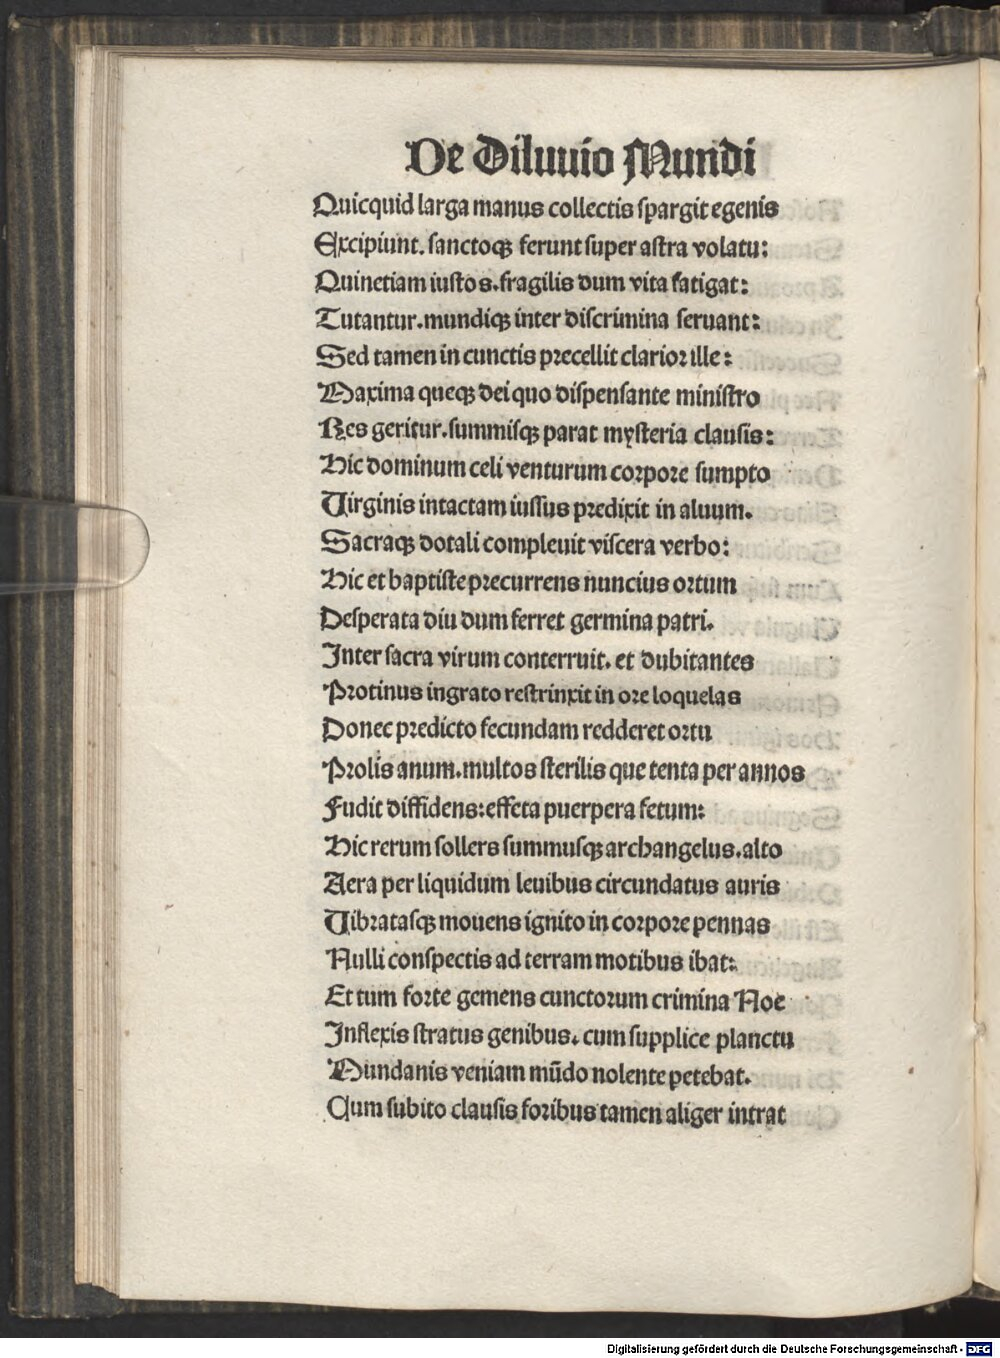 De Diluuio Mundi
Quicquid larga manus collectis spargit egenis
Excipiunt. sanctoqꝫ ferunt super astra volatu:
Quinetiam iustos. fragilis dum vita fatigat:
Tutantur. mundiqꝫ inter discrimina seruant:
Sed tamen in cunctis precellit clarior ille:
Maxima queqꝫ dei quo dispensante ministro
Res geritur. summisqꝫ parat mysteria clausis:
Hic dominum celi venturum corpore sumpto
Virginis intactam iussus predixit in aluum.
Sacraqꝫ dotali compleuit viscera verbo:
Hic et baptiste precurrens nuncius ortum
Desperata diu dum ferret germina patri.
Inter sacra virum conterruit. et dubitantes
Protinus ingrato restrinxit in ore loquelas
Donec predicto fecundam redderet ortu
Prolis anum. multos sterilis que tenta per annos
Fudit diffidens: effeta puerpera fetum:
Hic rerum sollers summusqꝫ archangelus. alto
Aera per liquidum leuibus circundatus auris
Vibratasqꝫ mouens ignito in corpore pennas
Nulli conspectis ad terram motibus ibat:
Et tum forte gemens cunctorum crimina Noe
Inflexis stratus genibus. cum supplice planctu
Mundanis veniam mūdo nolente petebat.
Cum subito clausis foribus tamen aliger intrat
Digitalisierung gefördert durch die Deutsche Forschungsgemeinschaft - DFG